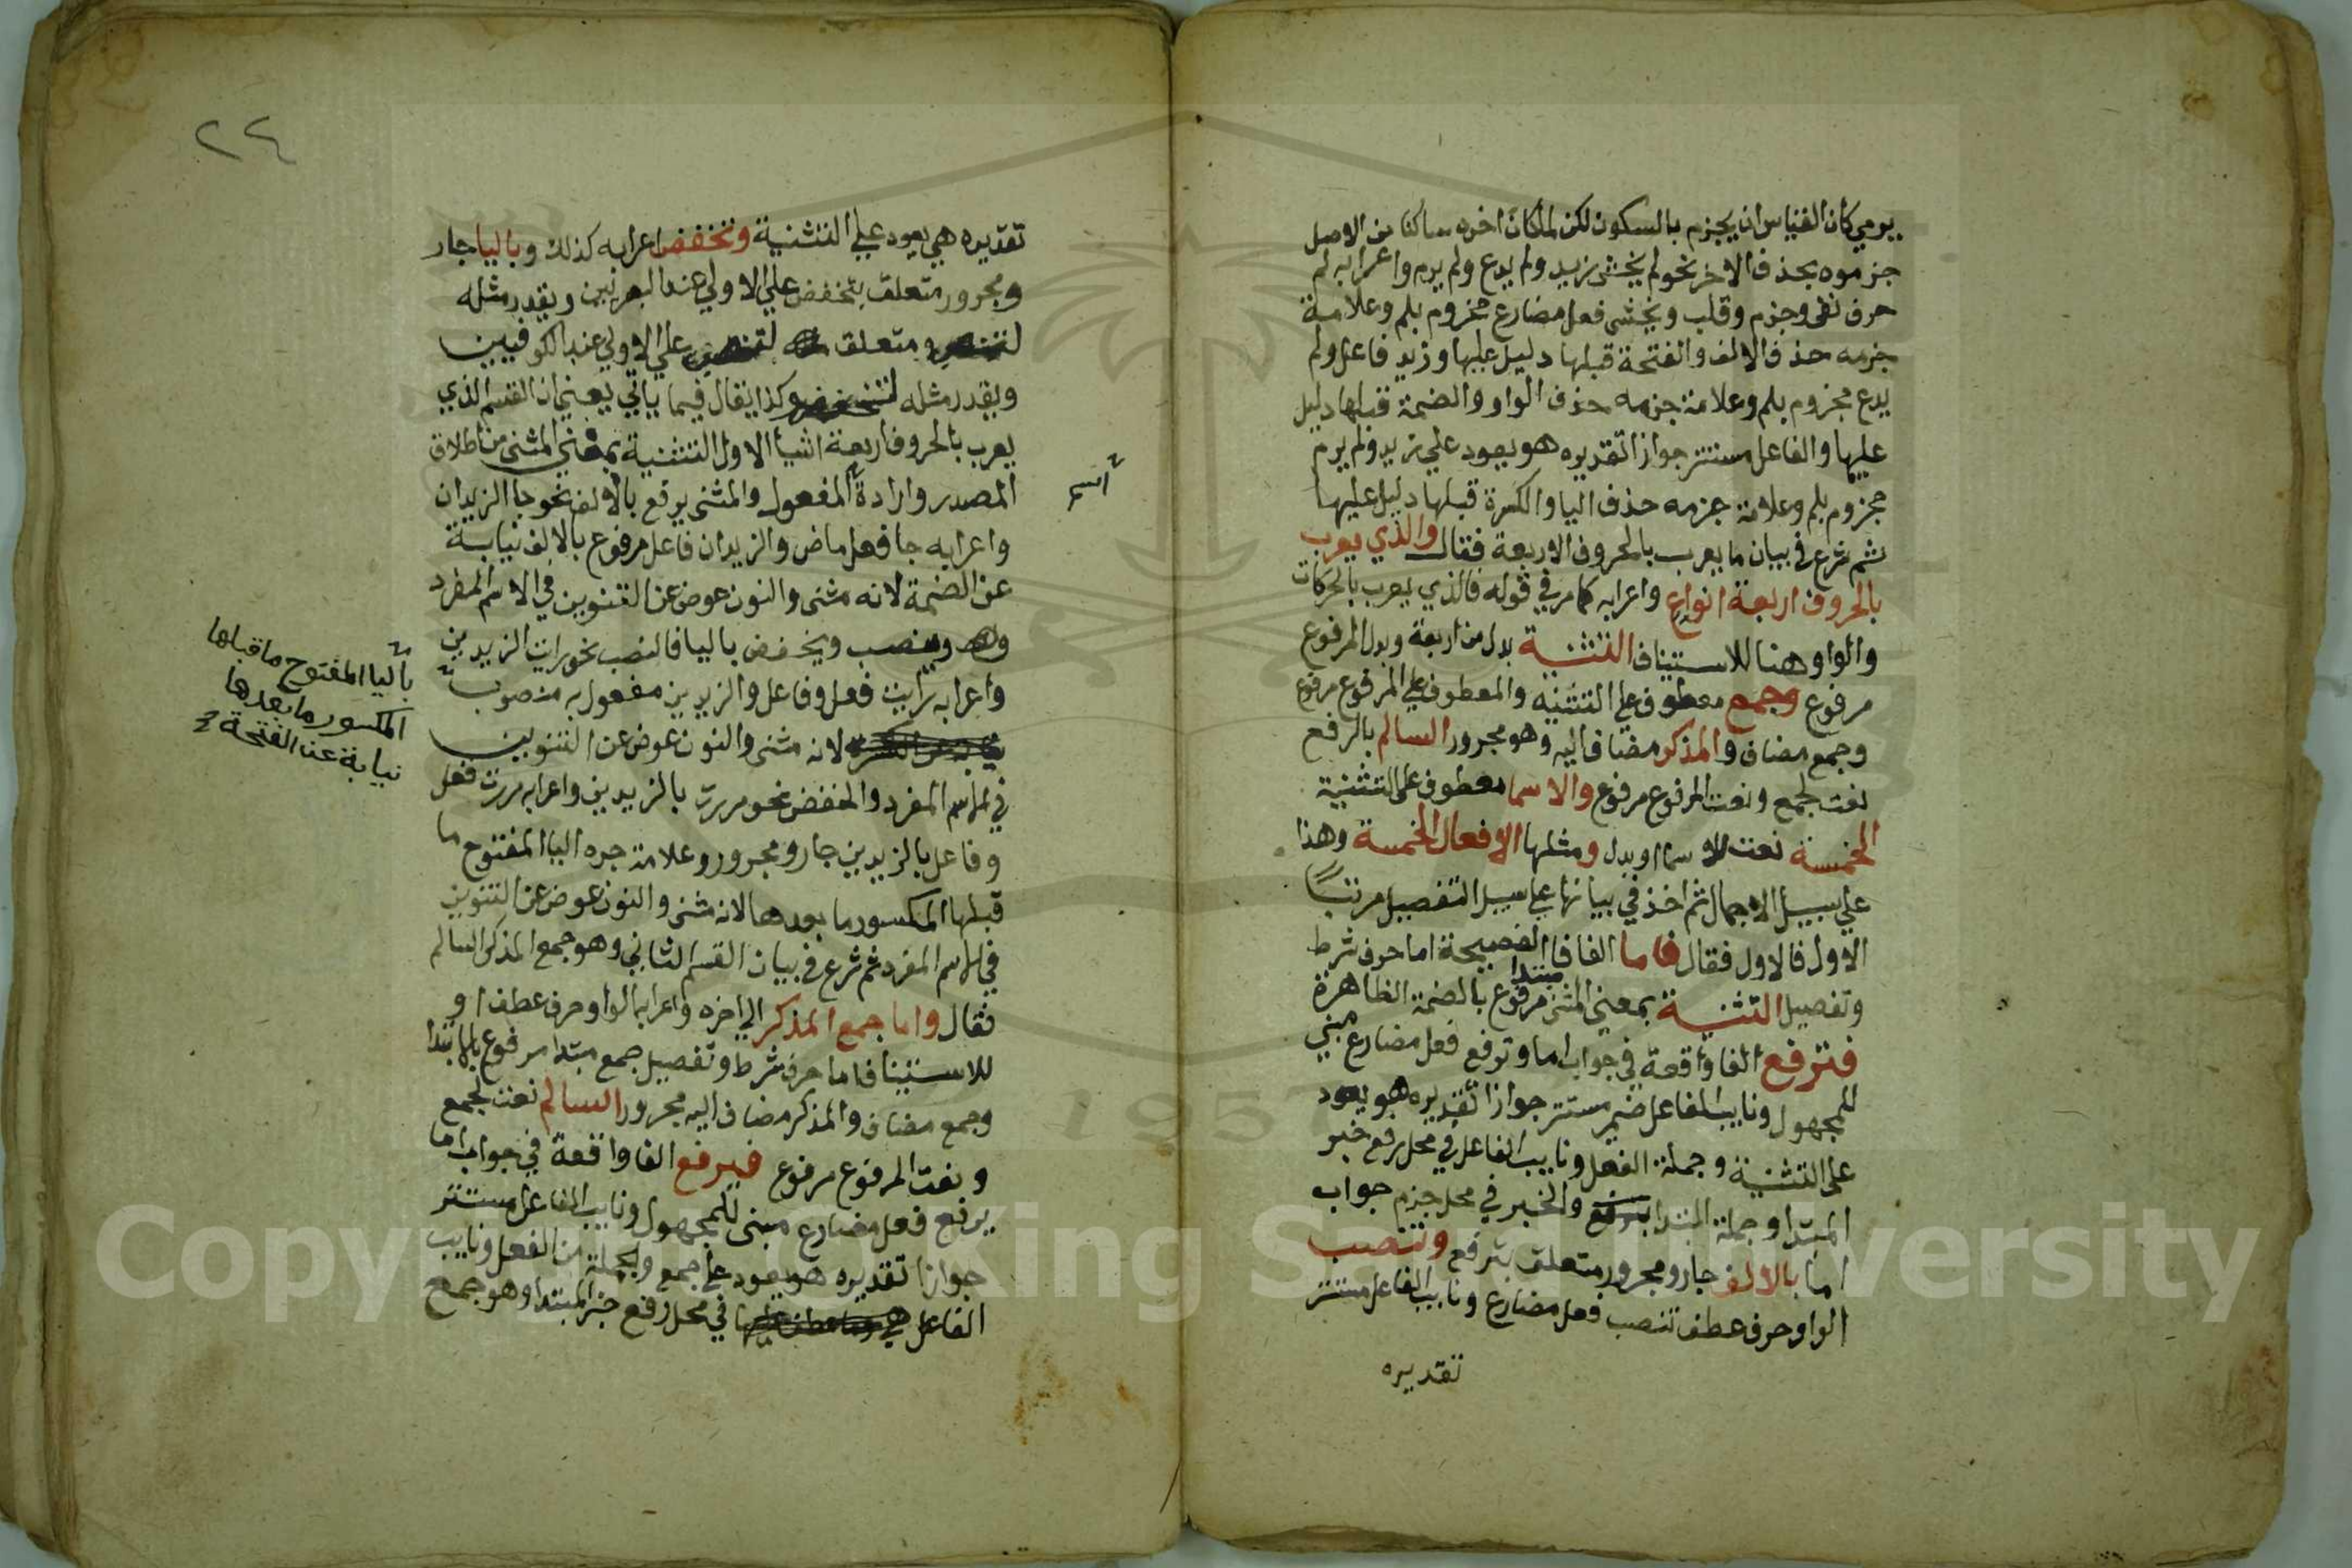 يرمي كان القياس ان يجزم بالسكون لكن لما كان اخره ساكنا من الاصل
جزموه بحذف الاخر نحو لم يخش زيد ولم يدع ولم يرم واعرابه لم
حرف نفي وجزم وقلب ويخشى فعل مضارع مجزوم بلم وعلامة
جزمه حذف الالف والفتحة قبلها دليل عليها وزيد فاعل ولم
يدع مجزوم بلم وعلامة جزمه حذف الواو والضمة قبلها دليل
عليها والفاعل مستتر جوازا تقديره هو يعود علي زيد ولم يرم
مجزوم بلم وعلامة جزمه حذف اليا والكسرة قبلها دليل عليها
ثم شرع في بيان ما يعرب بالحروف الاربعة فقال والذي يعرب
بالحروف اربعة انواع واعرابه كما مر في قوله فالذي يعرب بالحركات
والواو هنا للاستيناف التثنية بدل من اربعة وبدل المرفوع
مرفوع وجمع معطوف علي التثنيه والمعطوف علي المرفوع مرفوع
وجمع مضاف والمذكر مضاف اليه وهو مجرور السالم بالرفع
نعت لجمع ونعت المرفوع مرفوع والاسما معطوف على التثنية
الخمسة نعت للاسما او بدل ومثلها الافعال الخمسة وهذا
علي سبيل الاجمال ثم اخذ في بيانها علي سبيل التفصيل مرتبًا
الاول فالاول فقال فاما الفا فا الفصيحة اما حرف شرط
وتفصيل التثنية بمعني المثنى مبتدا مرفوع بالضمة الظاهرة
فترفع الفا واقعة في جواب اما وترفع فعل مضارع مبني
للمجهول ونايب الفاعل ضمير مستتر جوازا تقديره هو يعود
على التثنية وجملة الفعل ونايب الفاعل في محل رفع خبر
المبتدا وجملة المبتدا والخبر في محل جزم جواب
اما بالالف جار ومجرور متعلق بترفع وتنصب
الواو حرف عطف تنصب فعل مضارع ونايب الفاعل مستتر
تقديره
٢٤
تقديره هي يعود علي التثنية وتخفض اعرابه كذلك وباليا جار
ومجرور متعلق بتخفض علي الاولي عند البصريين ويقدر مثله
لتنصب متعلق لتنصب علي الاولي عند الكوفيين
ويقدر مثله لتخفض وكذا يقال فيما ياتي يعني ان القسم الذي
يعرب بالحروف اربعة اشيا الاول التثنية بمعني المثنى من اطلاق
المصدر وارادة المفعول والمثنى يرفع بالالف نحو جا الزيدان
اسم
واعرابه جا فعل ماض والزيدان فاعل مرفوع بالالف نيابة
عن الضمة لانه مثنى والنون عوض عن التنوين في الاسم المفرد
وينصب ويخفض باليا فالنصب نحو رايت الزيدين
واعرابه رايت فعل وفاعل والزيدين مفعول به منصوب
باليا المفتوح ما قبلها
المكسور ما بعدها
نيابة عن الفتحة
لانه مثنى والنون عوض عن التنوين
في الاسم المفرد والخفض نحو مررت بالزيدين واعرابه مررت فعل
وفاعل بالزيدين جار ومجرور وعلامة جره اليا المفتوح ما
قبلها المكسور ما بعدها لانه مثنى والنون عوض عن التنوين
في الاسم المفرد ثم شرع في بيان القسم الثاني وهو جمع المذكر السالم
فقال واما جمع المذكر الي اخره واعرابه الواو حرف عطف او
للاستيناف اما حرف شرط وتفصيل جمع مبتدا مرفوع بالابتدا
وجمع مضاف والمذكر مضاف اليه مجرور السالم نعت لجمع
ونعت المرفوع مرفوع فيرفع الفا واقعة في جواب اما
يرفع فعل مضارع مبنى للمجهول ونايب الفاعل مستتر
جوازا تقديره هو يعود علي جمع والجملة من الفعل ونايب
الفاعل في محل رفع خبر المبتدا وهو جمع
1957
Copyright © King Saud University